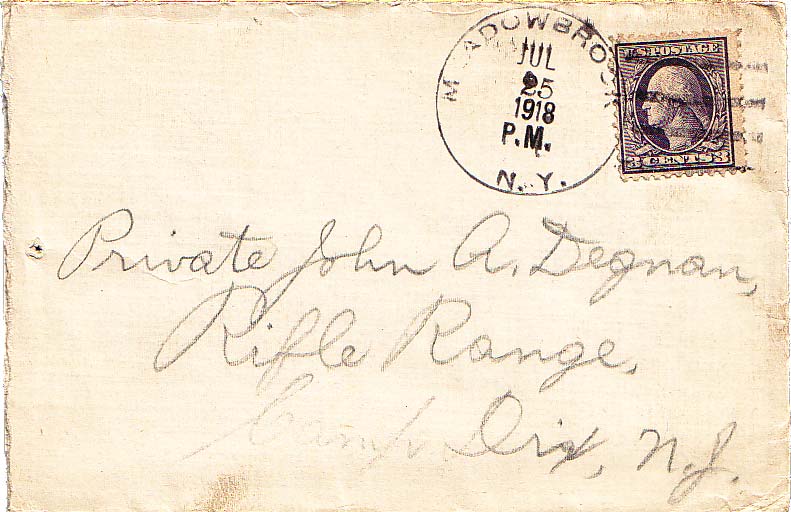 MEADOWBROOK
JUL
25
1918
P.M.
N.Y.
U.S. POSTAGE
3 CENTS 3
Private John A. Degnan,
Rifle Range,
Camp Dix, N.J.